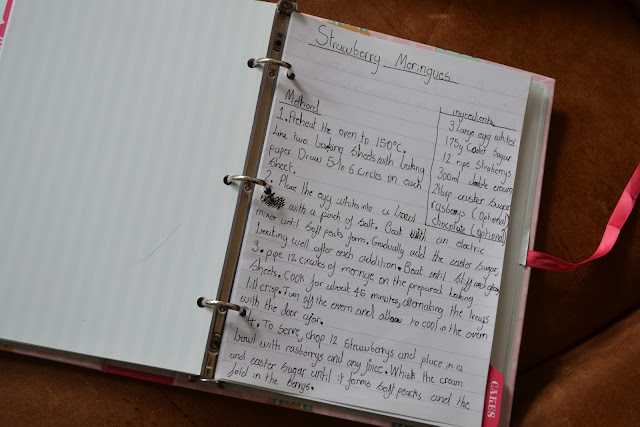 Strawberry Meringues
Method
1. Preheat the oven to 150°C.
Line two baking sheets with baking
paper. Draw 5 to 6 circles on each
sheet.
2. Place the egg whites into a bowl
with a pinch of salt. Beat with an electric
mixer until soft peaks form. Gradually add the caster sugar,
beating well after each addition. Beat until stiff and glossy
3. pipe 12 circules of meringe on the prepared baking
sheets. Cook for about 45 minutes, alternating the trays
till crisp. Turn off the overn and allow to cool in the overn
with the door ajar.
4. To serve, chop 12 Strawberrys and place in a
bowl with rasberrys and any juice. Whisk the cream
and caster sugar until it forms soft peacks and the
fold in the berrys.
ingredients
3 Large egg whites
175g Caster sugar
12 ripe Straberrys
300ml double cream
2tbsp caster sugar
rasberrys (optional)
chocolate (optional)
CAKES